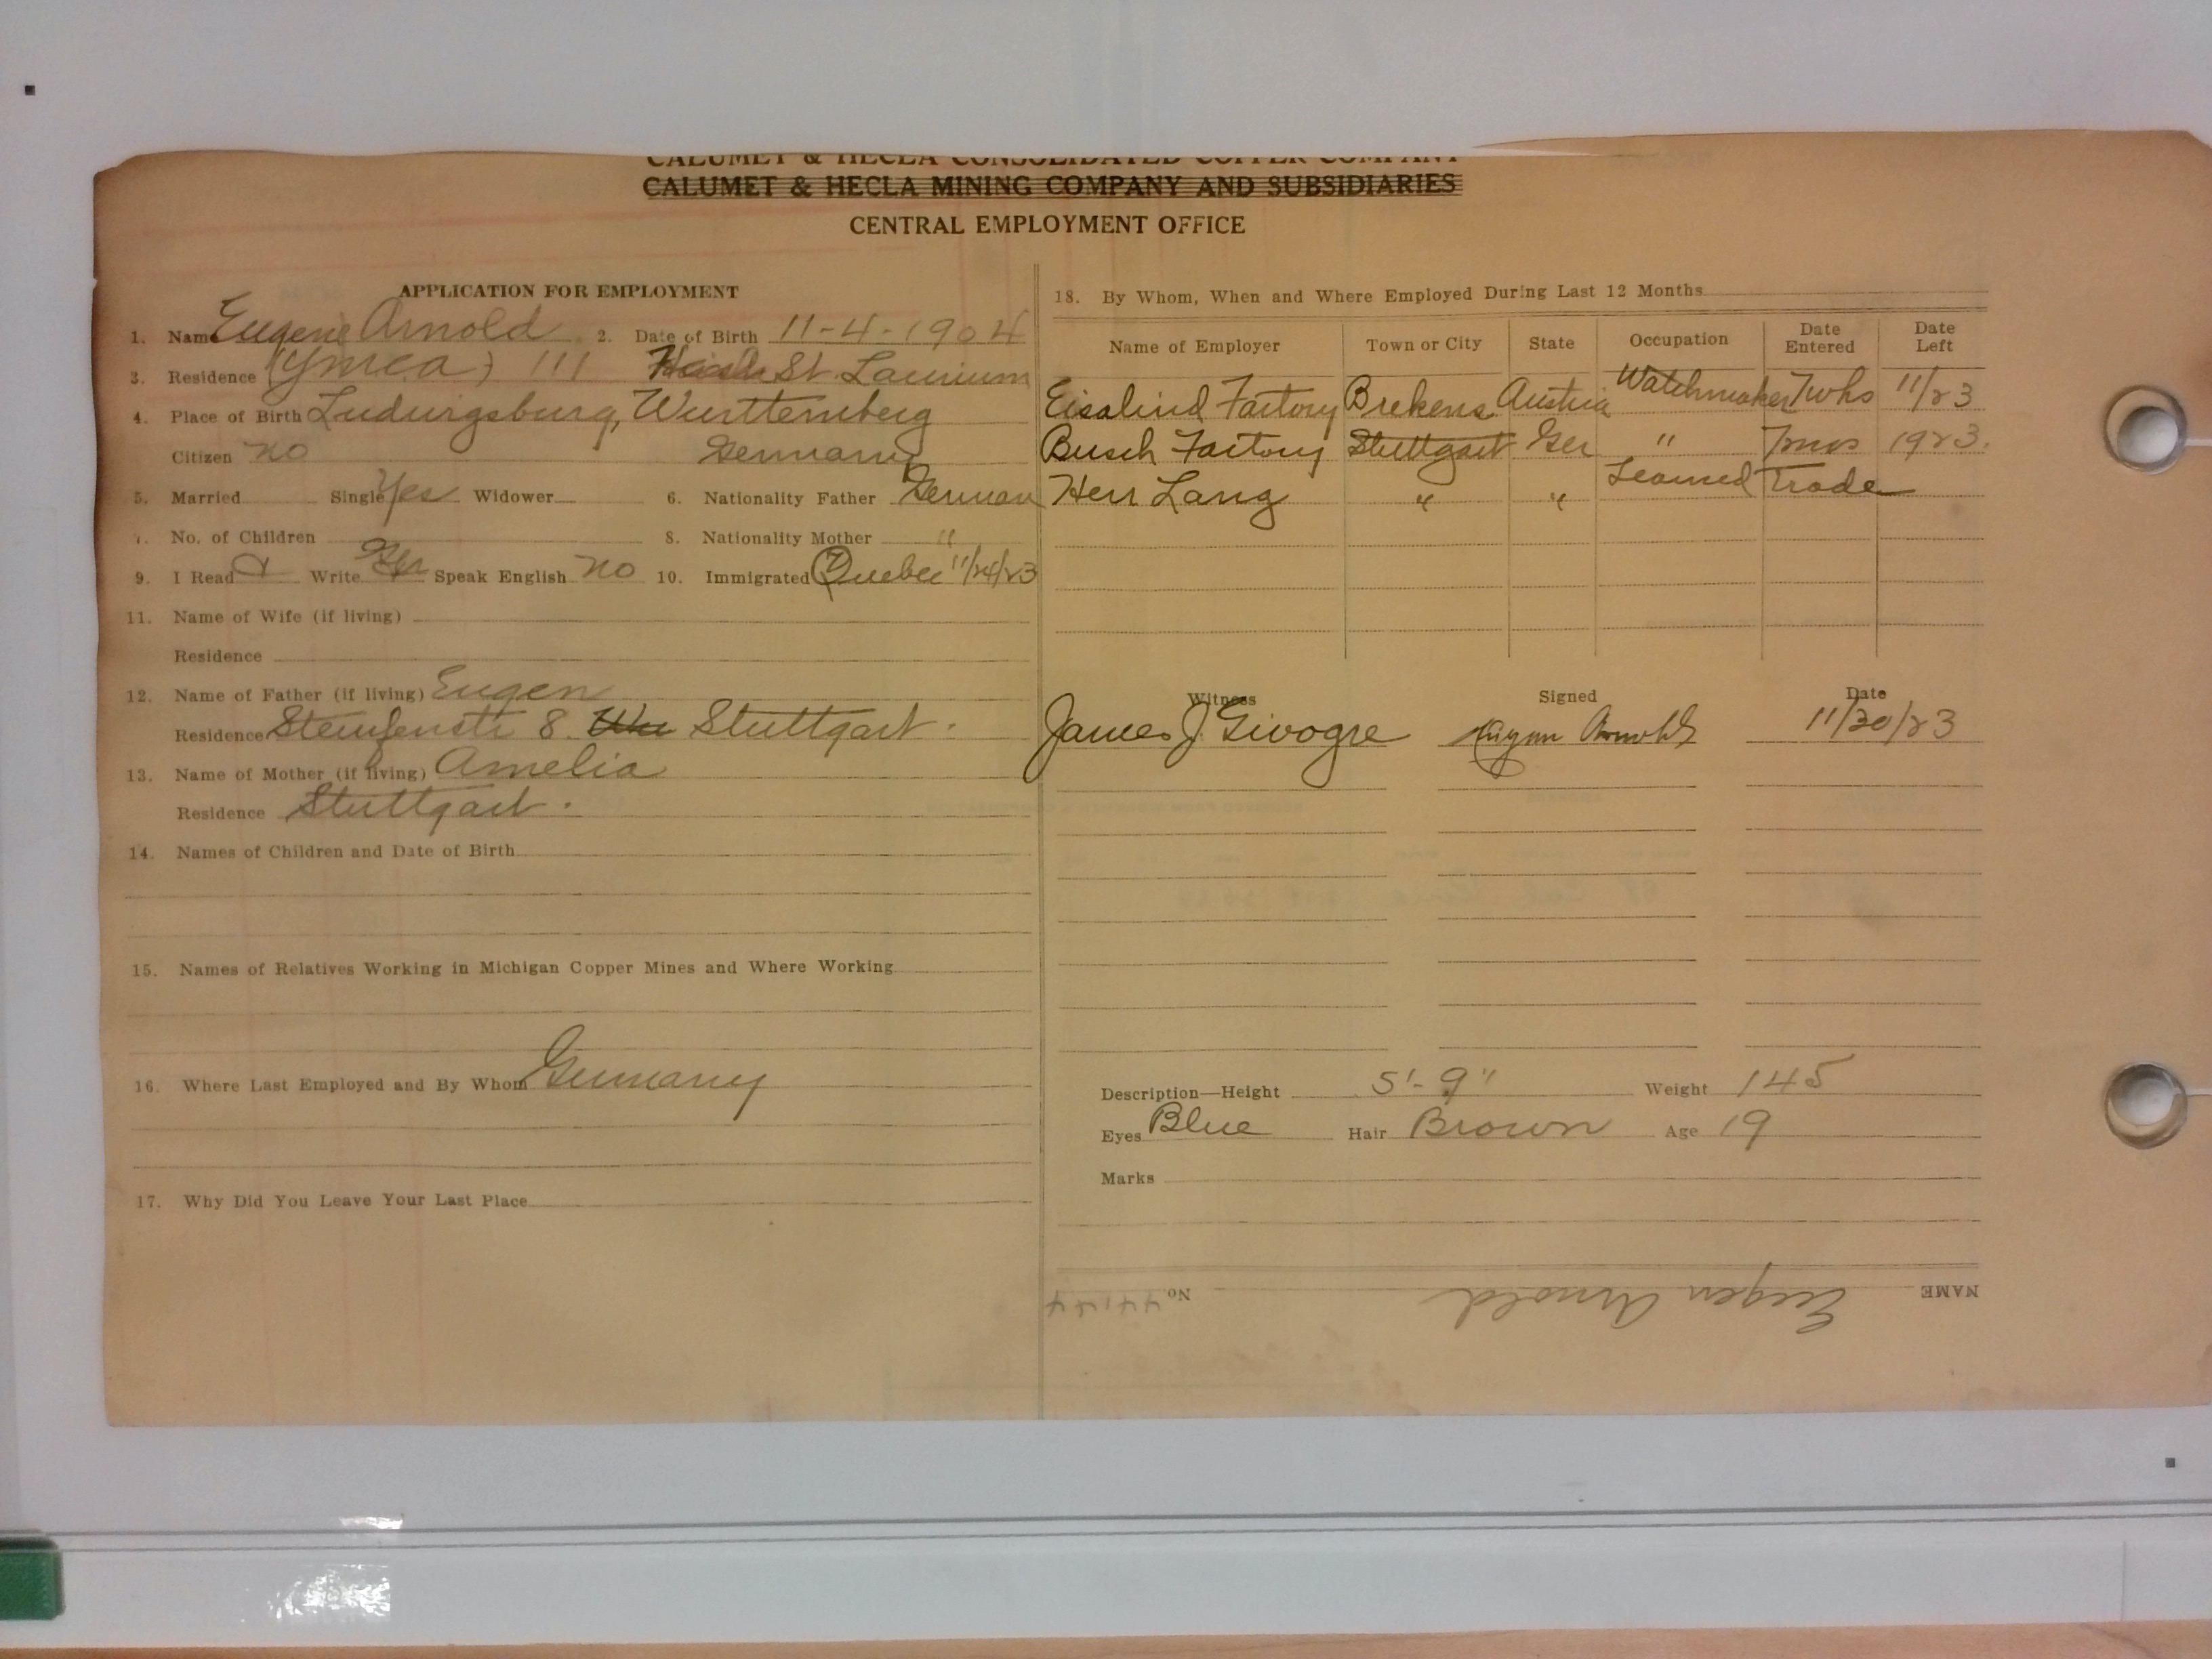 CALUMET & HECLA CONSOLIDATED COPPER COMPANY
CALUMET & HECLA MINING COMPANY AND SUBSIDIARIES
CENTRAL EMPLOYMENT OFFICE
APPLICATION FOR EMPLOYMENT
1. Name Eugene Arnold 2. Date of Birth 11-4-1904
3. Residence (Ymca) 111 St. Laurium
4. Place of Birth Ludwigsburg, Wurttemberg
Citizen no Germany
5. Married Single Yes Widower 6. Nationality Father German
7. No. of Children 8. Nationality Mother "
9. I Read & Write Ger Speak English no 10. Immigrated Quebec 11/24/23
11. Name of Wife (if living)
Residence
12. Name of Father (if living) Eugen
Residence 8. Stuttgart.
13. Name of Mother (if living) Amelia
Residence Stuttgart.
14. Names of Children and Date of Birth
15. Names of Relatives Working in Michigan Copper Mines and Where Working
16. Where Last Employed and By Whom Germany
17. Why Did You Leave Your Last Place
18. By Whom, When and Where Employed During Last 12 Months
Name of Employer Town or City State Occupation Date Entered Date Left
Factory Austria Watchmaker 7 wks 11/23
Busch Factory Stuttgart Ger " 7 mos 1923.
Herr Lang " " Learned Trade
Witness Signed Date
James J. Givogre Eugen Arnold 11/30/23
Description—Height 5'-9" Weight 145
Eyes Blue Hair Brown Age 19
Marks
NAME Eugen Arnold No.